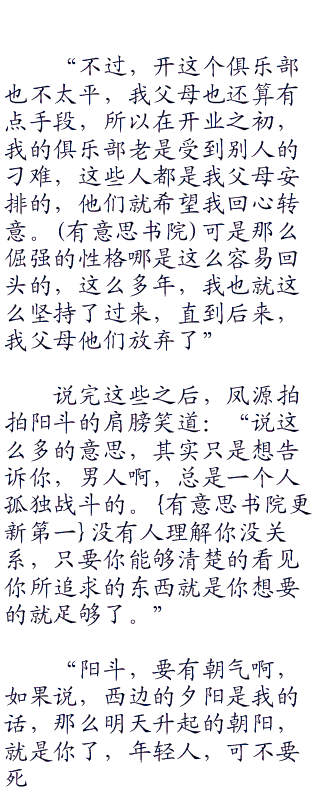 “不过，开这个俱乐部
也不太平，我父母也还算有
点手段，所以在开业之初，
我的俱乐部老是受到别人的
刁难，这些人都是我父母安
排的，他们就希望我回心转
意。(有意思书院)可是那么
倔强的性格哪是这么容易回
头的，这么多年，我也就这
么坚持了过来，直到后来，
我父母他们放弃了”
说完这些之后，凤源拍
拍阳斗的肩膀笑道：“说这
么多的意思，其实只是想告
诉你，男人啊，总是一个人
孤独战斗的。{有意思书院更
新第一}没有人理解你没关
系，只要你能够清楚的看见
你所追求的东西就是你想要
的就足够了。”
“阳斗，要有朝气啊，
如果说，西边的夕阳是我的
话，那么明天升起的朝阳，
就是你了，年轻人，可不要
死